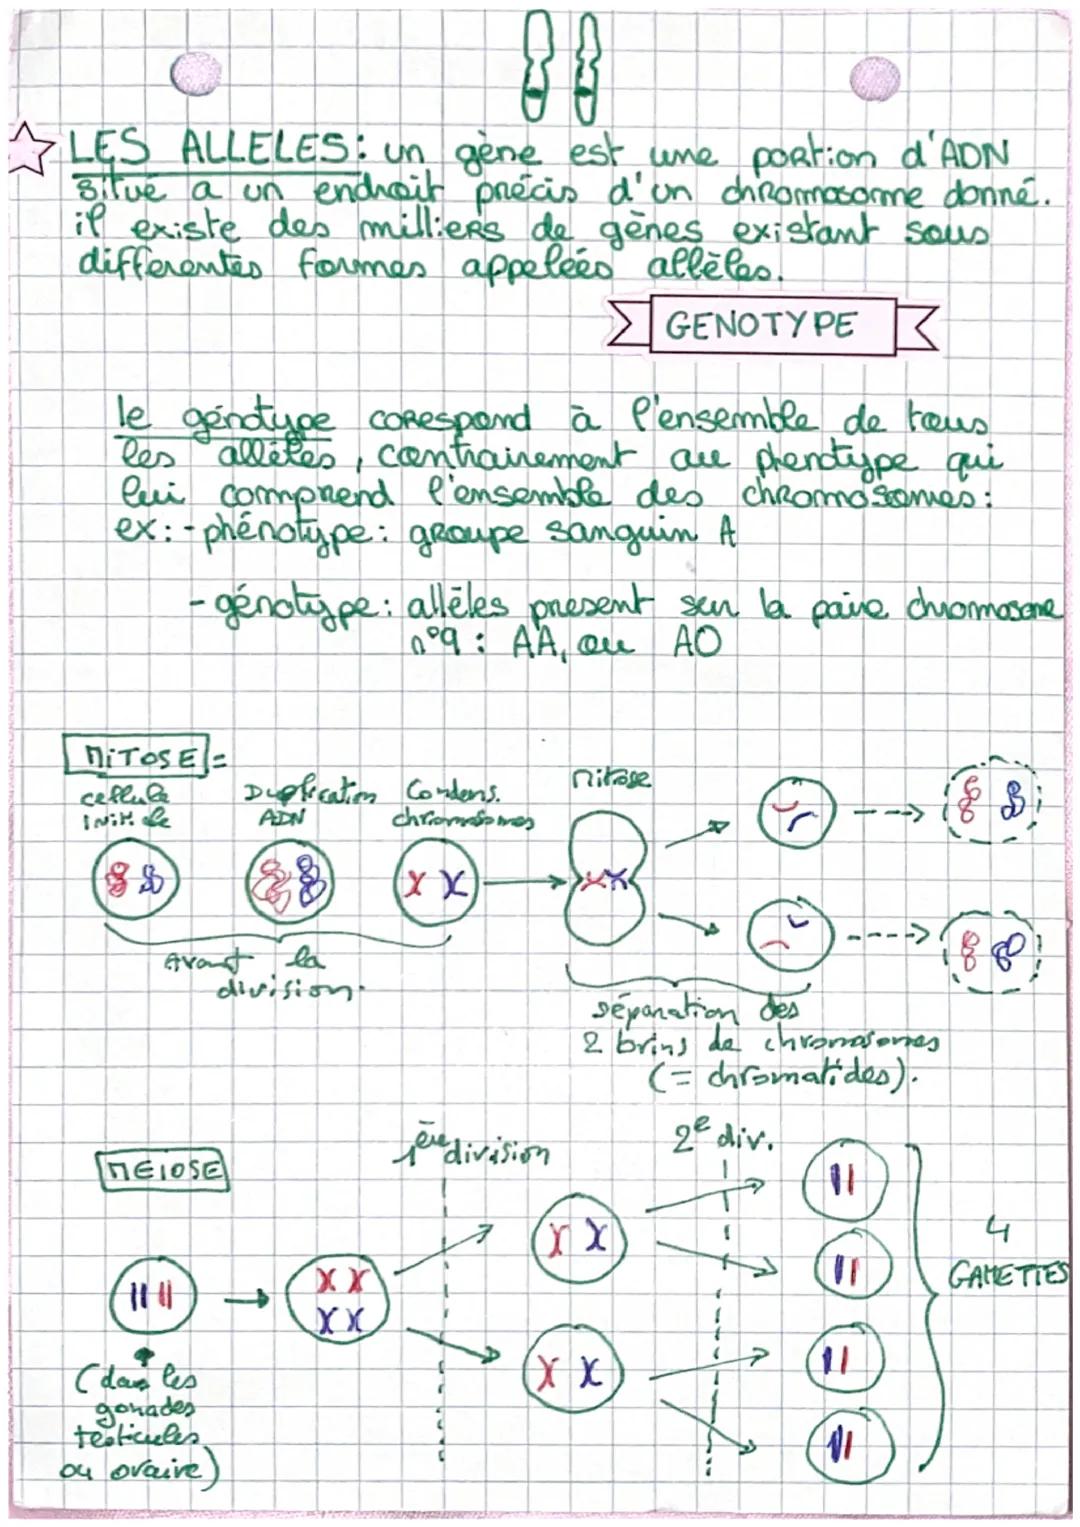 LES ALLELES: un gène est une portion d'ADN
situé a un endroit précis d'un chromosome donné.
il existe des milliers de gènes existant sous
differentes formes appelées allèles.
GENOTYPE
le génotype corespond à l'ensemble de tous
les allèles, contrairement au phenotype qui
lui comprend l'ensemble des chromosomes:
ex: - phénotype: groupe sanguin A
- génotype: allèles present sur la paire chromosome
n°9: AA, ou AO
MITOSE =
cellule
initiale
Duplication
ADN
Condens.
chromosomes
mitose
Avant la
division.
séparation des
2 brins de chromosomes
(= chromatides).
MEIOSE
1ère division
2e div.
4
GAMETTES
(dans les
gonades
testicules
ou ovaire)